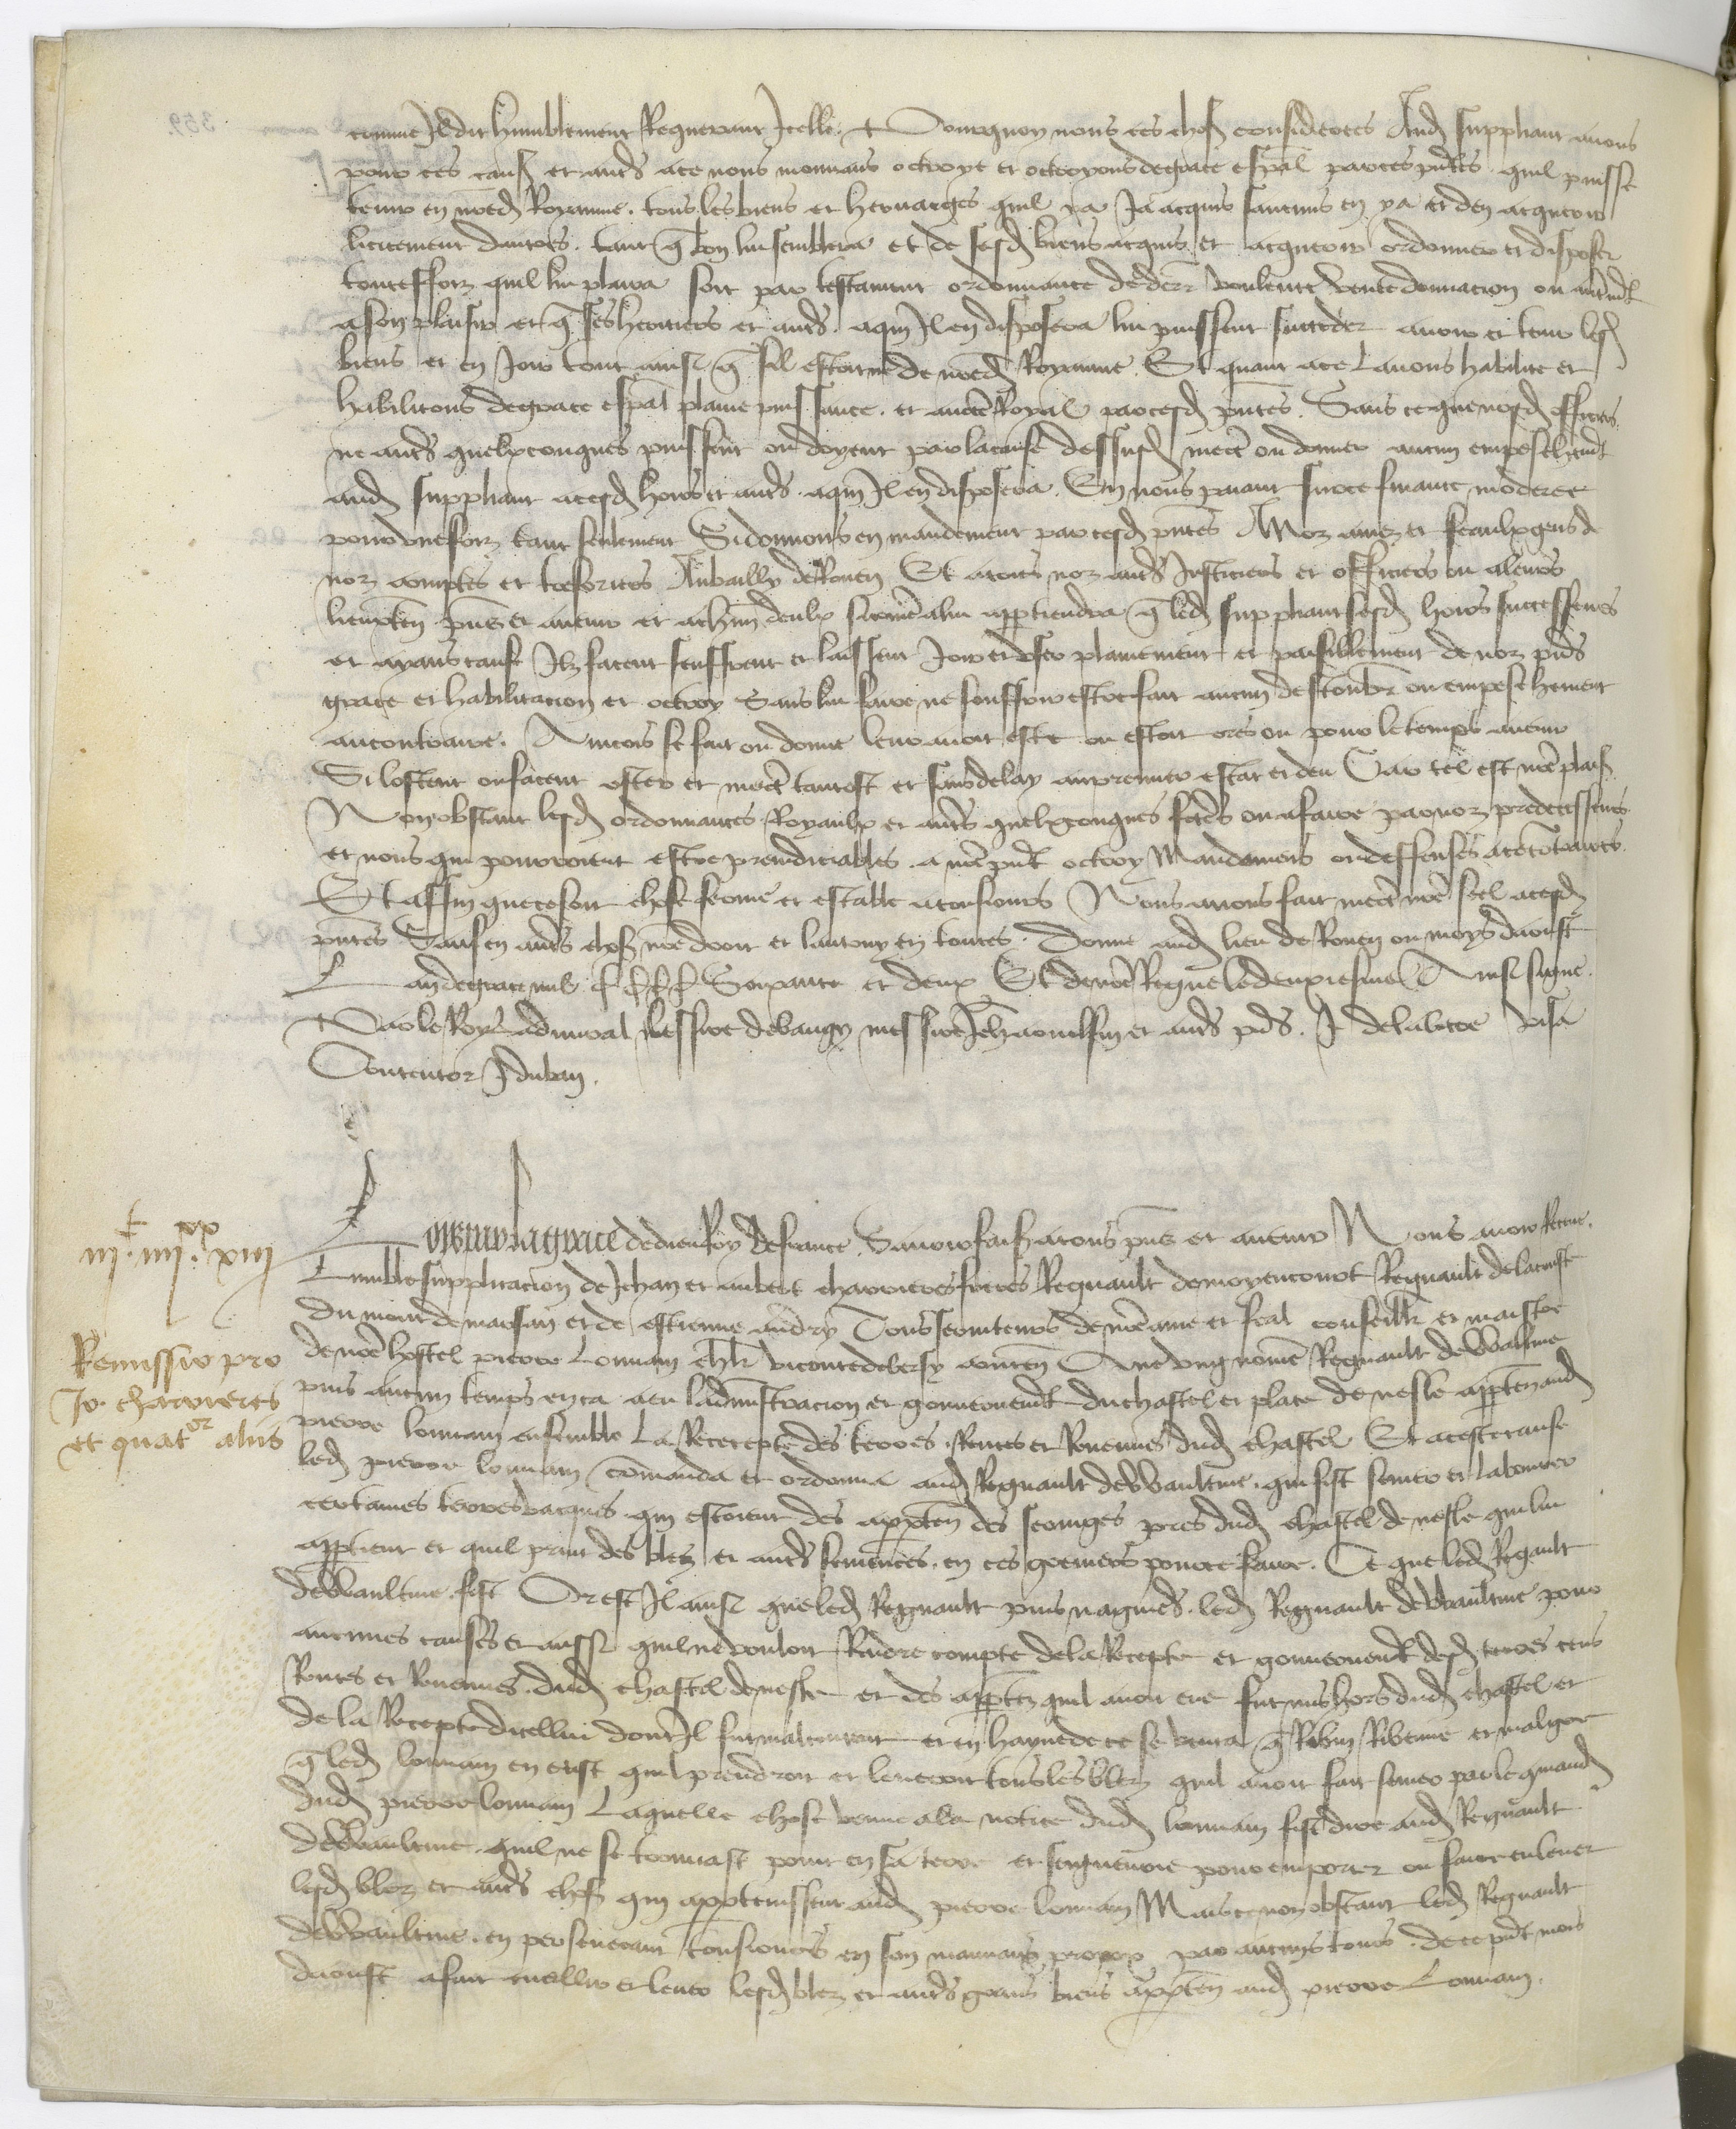 comme Il dit humblement Requerant Icelle. Pourquoy nous ces choses considerees Aud suppliant avons
pour ces causes et autres ace nous mouvans octroye et octroyons de grace espal par ces pntes quil puisse
tenir en nred Royaume. tous les biens et heritaiges quil ya Ja acquis aucuns en ya et den acquerir
licitement dautres. tant q bon lui semblera et de sesd biens acquis et acquerir ordonner et disposer
touteffoiz quil lui plaira soit par testament ordonnance de derr voulente vente donnacion ou autremt
a son plaisir et q ses heritiers et autres. aqui Il en disposera lui puissent succeder avoir et tenir lesd
biens et en Joir tout ainsi q sil estoit ne de nred Royaume. Et quant ace Lavons habilite et
habilitons de grace espal plaine puissance. et aucte Royal par cesd pntes. Sans ce que nosd officiers
ne autres quelxconques puissent ou doyent par la cause dessusd mectre ou donner aucun empeschemt
aud suppliant acesd hoirs et autres. aqui Il en disposera. En nous paiant sur ce finance moderee
pour une foiz tant seulement Si donnons en mandement par cesd pntes A Noz amez et feaulx gens de
noz comptes et tresoriers Au bailly de Rouen Et atous noz autres Justiciers et officiers ou aleurs
lieuxten pns et avenir et achun deulx si come alui appartiendra q led suppliant sesd hoirs successeurs
et ayans cause Ilz facent seuffrent et laissent Joir et user plainement et paisiblement de noz pns
grace et habilitacion et octroy Sans lui faire ne souffrir estre fait aucun destourbr ou empeschement
aucontraire. Aincois se fait ou donne leur avoit este ou estoit ores ou pour le temps avenir
Si lostent ou facent oster et mectre tantost et sans delay au premier estat et deu Car tel est nre plaisr
Nonobstant lesd ordonnances Royaulx et autres quelxconques fctes ou afaire par noz predecesseurs
et nous qui pourroient estre preiudiciables. a nre pnt octroy Mandemens ou deffenses ace contraires.
Et affin que ce soit chose ferme et estable atousiours Nous avons fait mectre nre seel acesd
pntes Sauf en autres choses nre droit et lautruy en toutes. Donne aud lieu de Rouen ou moys daoust
Lan de grace mil CCCC Soixante et deux Et de nre Regne le deuxiesme Ainsi signe.
Par le Roy Ladmiral messire messire Jeh et autres pns. J de la loere Visa
Contentor J duban.

iijc iiijxx xiij
Remissio pro
Jo. charrieres
et quator aliis

Loys par la grace de dieu Roy de france. Savoir faisons atous pns et avenir Nous avoir Receue.
Lumble supplicacion de Jehan et aubert charrieres freres Regnault demoyencourt Regnault delacroste
du mont de marsan et de estienne andry Tous serviteurs de nre ame et feal conseillr et maistre
de nre hostel pierre Louvain chlr viconte de berzy conten Que ung nome Regnault de Waltme
puis aucun temps enca aeu ladministracion et gouvernemt du chastel et place de nesle apptenand
pierre louvain ensemble La Recepte des terres. Rentes et Revenues dud chastel Et aceste cause
led pierre louvain comanda et ordonna aud Regnault deWaultme. quil fist semer et labourer
certaines terres vacques qui estoient des apparten des pres dud chastel de nesle qui lui
apptient et quil print des blez et autres semences. en ces greniers pour ce faire. Ce que led Regnault
deWaultme. fist Or est Il ainsi que led Regnault puis nagueres. led Regnault deWaultme pour
aucunes causes et aussi quil ne vouloit Rendre compte de la Recepte et gouvernemt desd terres cens
Rentes et Revenues. dud chastel denesle et des apparten quil avoit eue fut mis hors dud chastel et
de la Recepte dicellui dont Il fut malcontent et en hayne de ce se venta q et malgre
q led louvain en eust quil prendroit et leveroit tous les blez quil avoit fait semer par le comand
dud pierre louvain Laquelle chose venue ala notice dud louvain fist dire aud Regnault
deWaultme. quil ne se trouvast point en sa terre et seigneurie pour emporter ou faire enlever
lesd blez et autres choses qui apptenissent aud pierre louvain Mais ce nonobstant led Regnault
deWaultme. en perseverant tousiours en son mauvais propox par aucuns jours. de ce pnt mois
daoust afait cueillir et lever lesd blez et autres grans biens apparten aud pierre Louvain.